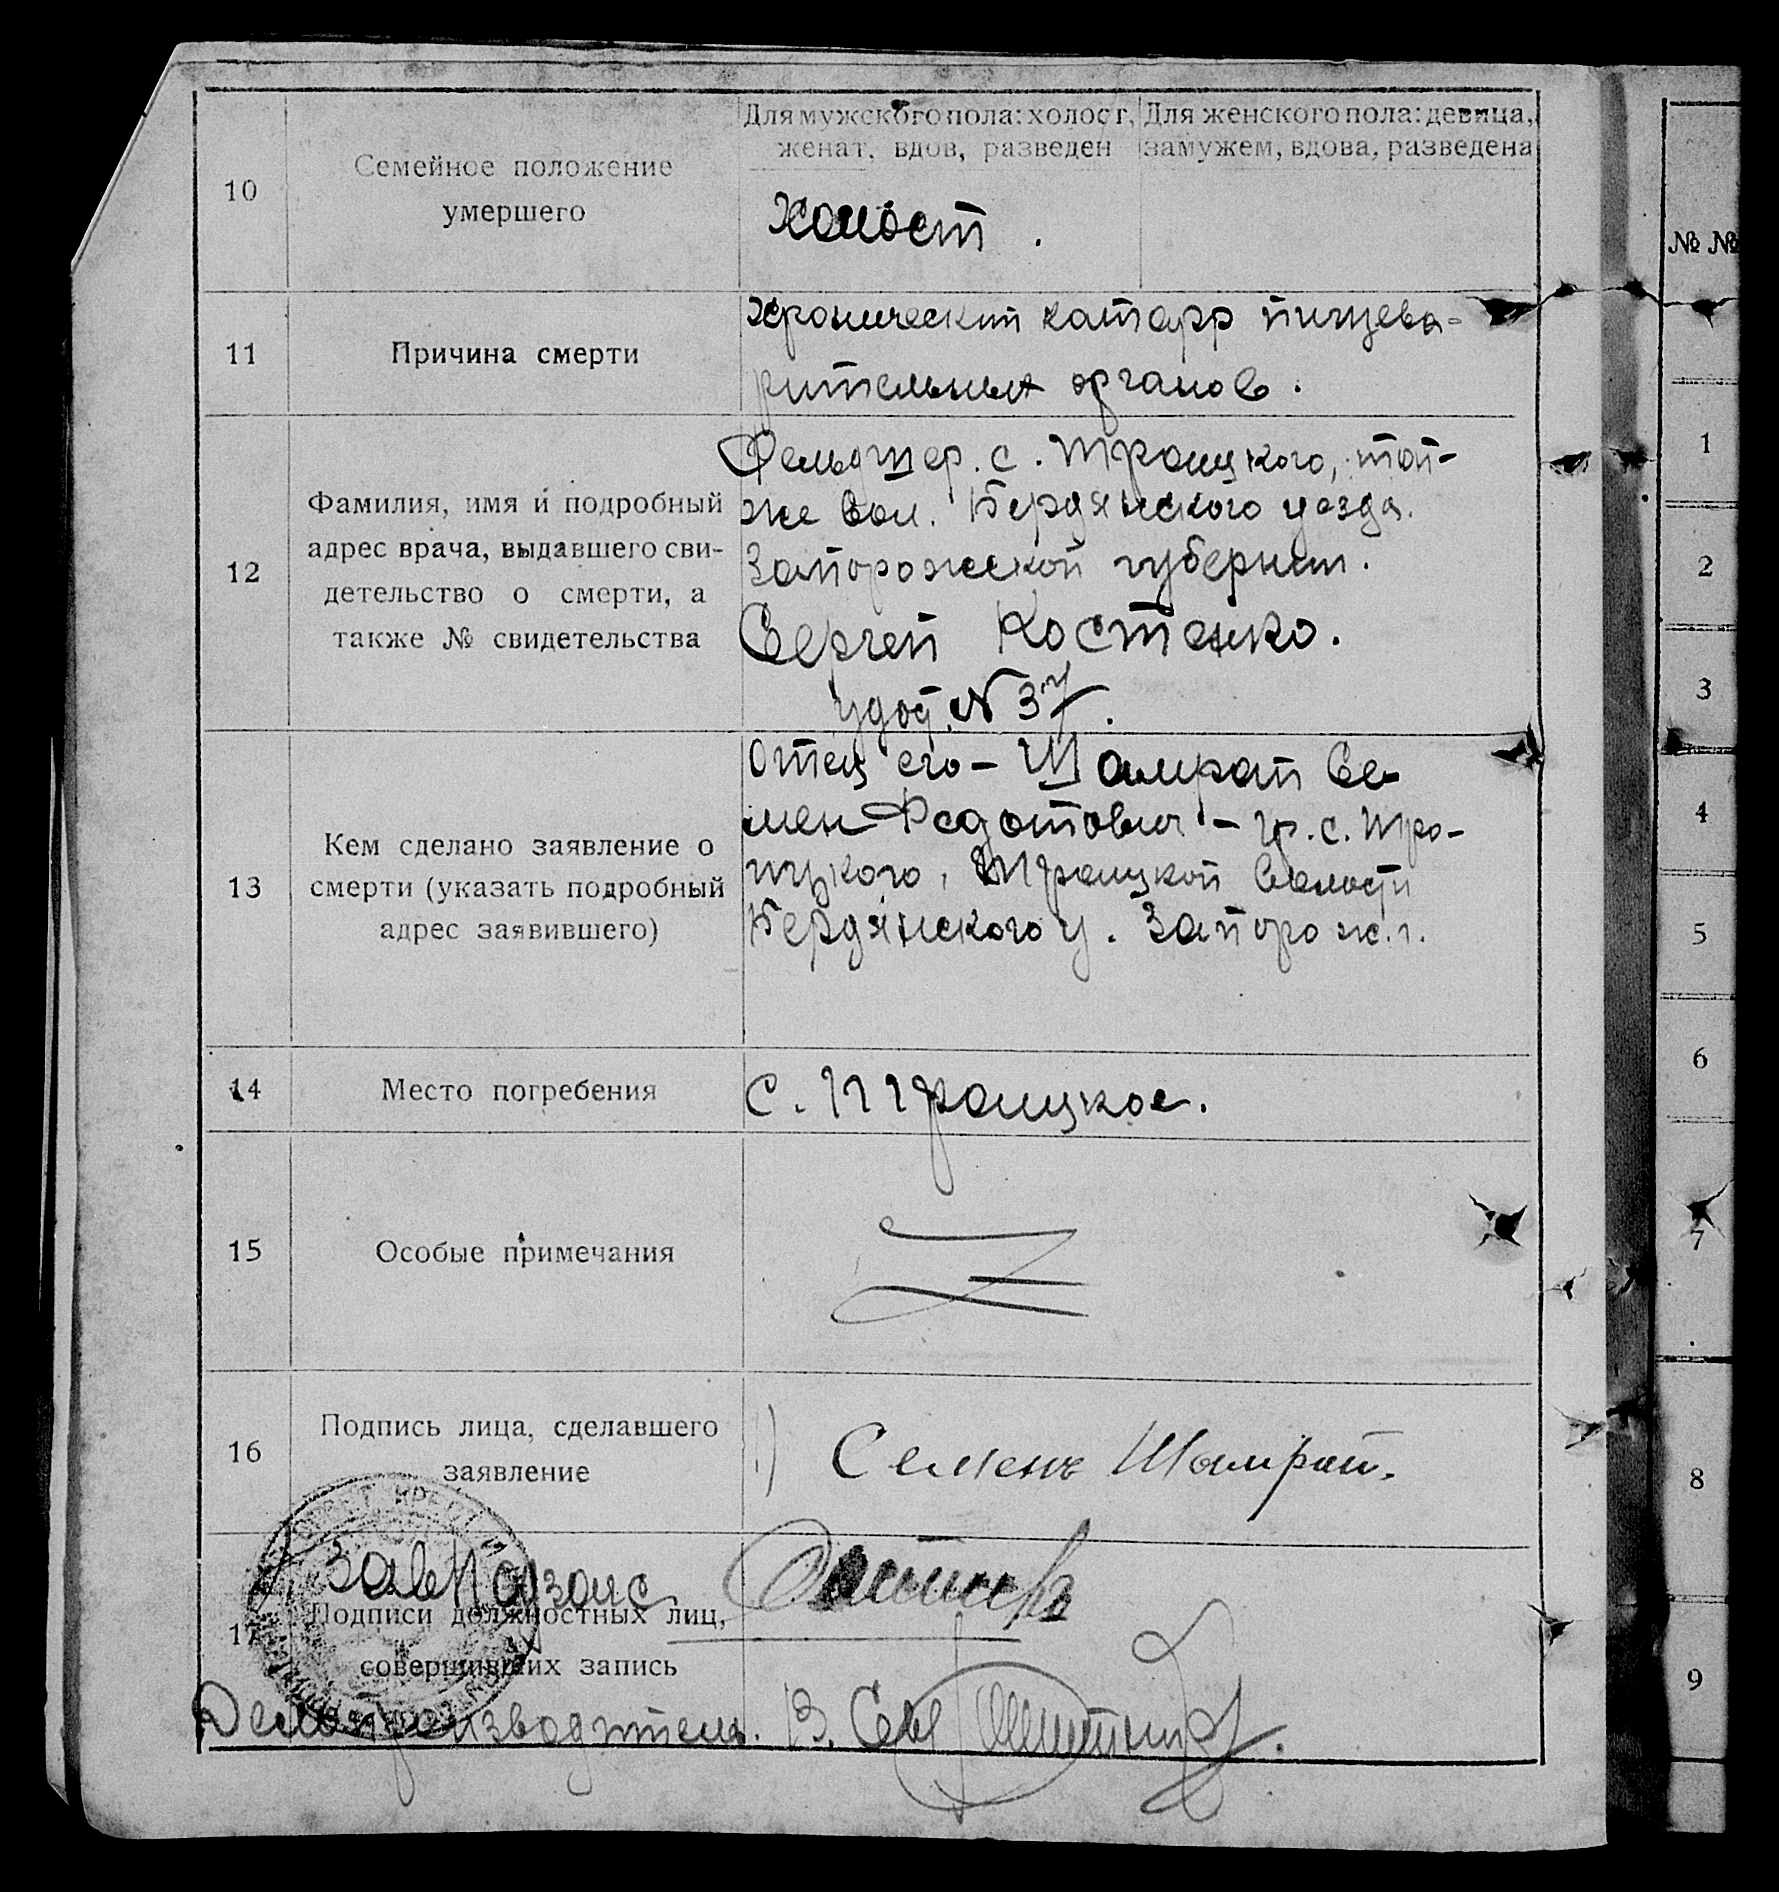 Для мужского пола: холост, женат, вдов, разведен
Для женского пола: девица, замужем, вдова, разведена
10
Семейное положение
умершего
Холост.
11
Причина смерти
Хронический катарр пищева-
рительных органов.
12
Фамилия, имя и подробный
адрес врача, выдавшего сви-
детельство о смерти, а
также № свидетельства
Фельдшер. с. Троицкого, той-
же вол. Бердянского уезда.
Запорожской губернии.
Сергей Костенко.
удост. N 37.
13
Кем сделано заявление о
смерти (указать подробный
адрес заявившего)
Отец его – Шамрай Се-
мен Федотович – гр. с. Тро-
ицкого, Троицкой Волости
Бердянского у. Запорож. г.
14
Место погребения
с. Троицкое.
15
Особые примечания
16
Подпись лица, сделавшего
заявление
1) Семенъ Шамрай.
17
Подписи должностных лиц,
совершивших запись
Делопроизводитель.
№ №
1
2
3
4
5
6
7
8
9